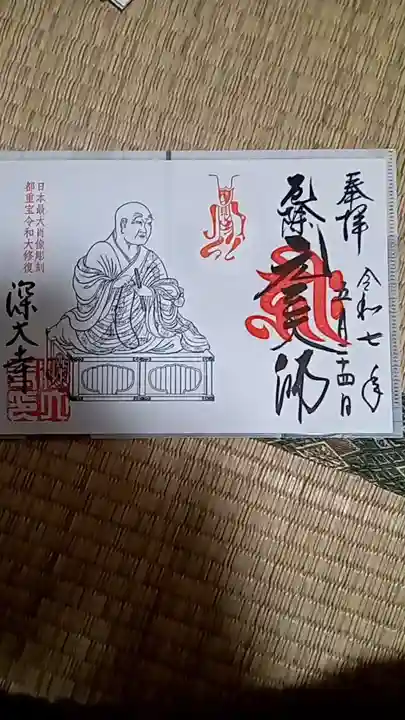 奉拝
令和七年
五月二十四日
元三大師
日本最大肖像彫刻
都重宝令和大修復
深大寺